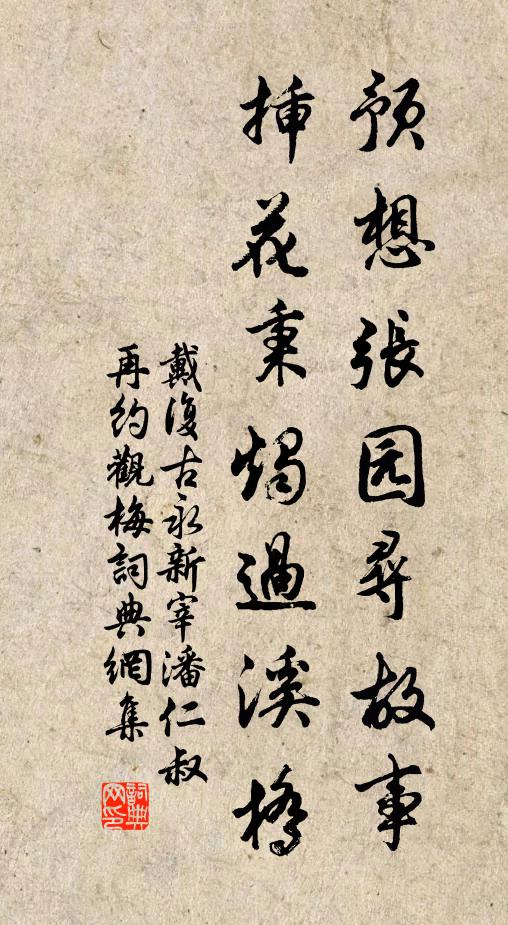 預想張园尋故事
挿花秉燭過溪橋
戴復古永新宰潘仁叔
再約觀梅詞典網集
詞典
网印